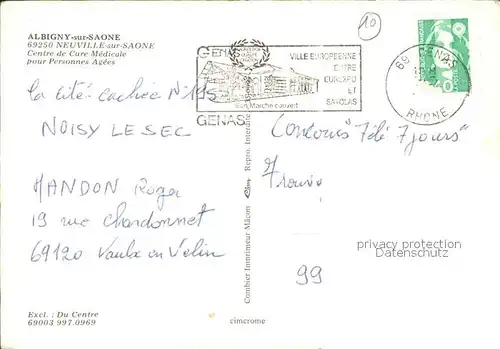 ALBIGNY-sur-SAONE
69250 NEUVILLE-sur-SAONE
Centre de Cure Médicale
pour Personnes Agées
10
GENAS
VILLE EUROPEENNE
ENTRE
EUREXPO
ET
SATOLAS
Son Marché couvert
GENAS
69 GENAS
RHONE
la cité cachée N° 195
NOISY LE SEC
MANDON Roger
19 rue Chardonnet
69120 Vaulx en Velin
Concours "Télé 7 jours"
99
privacy protection
Datenschutz
Combier Imprimeur Mâcon
Repro. Interdite
Excl. : Du Centre
69003 997.0969
cimcrome